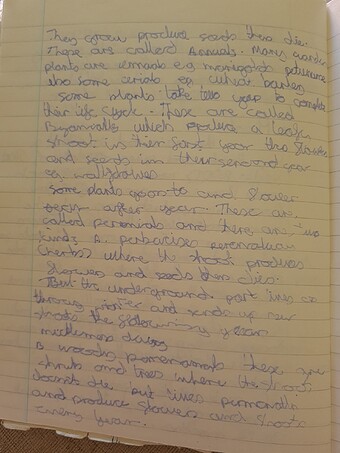 They grow produce seeds then die.
These are called Annuals. Many garden
plants are annuals e.g marigold petunia
also some cereals eg wheat barley
some plants take two year to complete
their life cycle. These are called
which produce a leafy
shoot in their first year the flower
and seeds in their second year
eg wallflowers
some plants goon to and flower
year after year. These are
called perennials and there are two
kinds A. perennials
(herbs) where the shoot produces
flowers and seeds then dies.
But the underground part lives on
through winter and sends up new
shoots the following year.
B woody perennials these are
shrubs and trees where the shoot
doesnt die but lives
and produce flowers and shoots
every year.